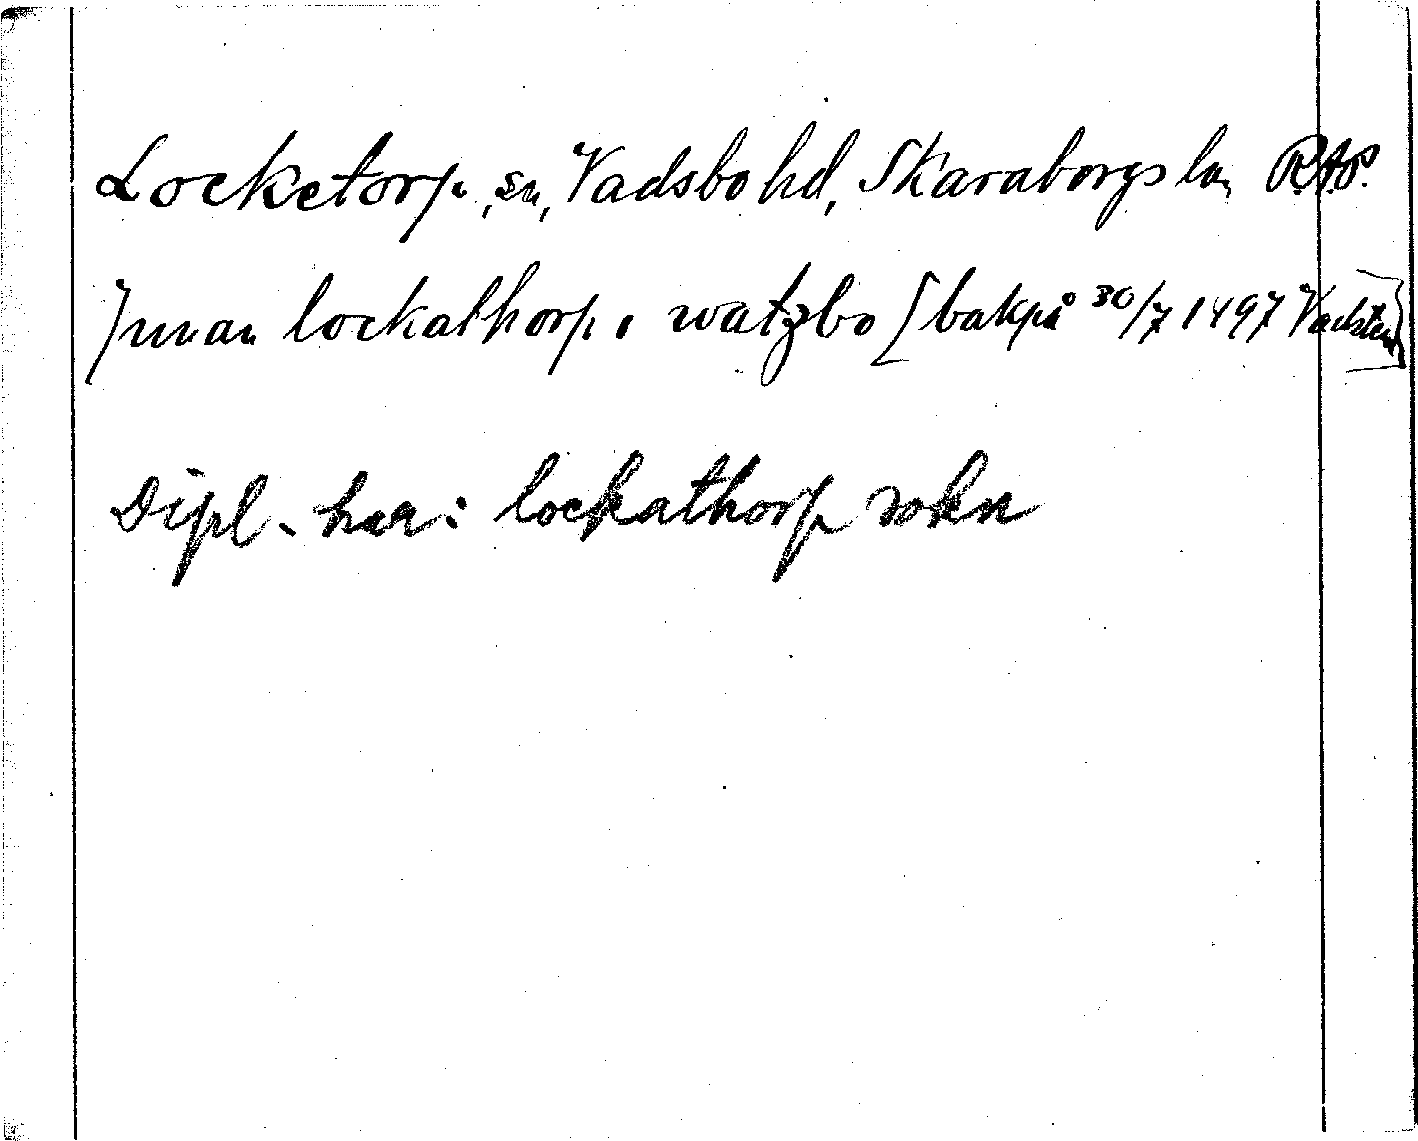 Locketorp, sn, Vadsbo hd, Skaraborgs län RAP.
Jnnan lockathorp i watzbo [bakpå 30/7 1497 Vadstena]
Dipl. har: lockathorp sokn